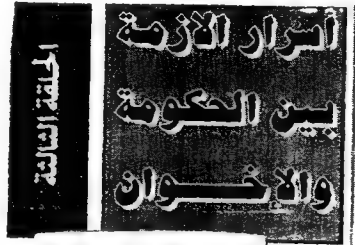 أسرار الأزمة
بين الحكومة
والإخوان
الحلقة الثالثة